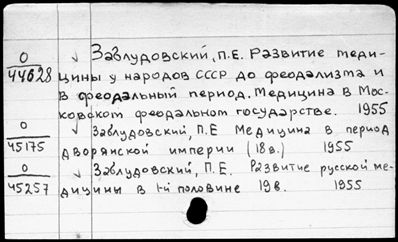 О/44628 ✓ Заблудовский, П.Е. Развитие меди-
цины у народов СССР до феодализма и
в феодальный период. Медицина в Мос-
ковском феодальном государстве. 1955
О/45175 ✓ Заблудовский, П.Е Медицина в период
дворянской империи (18 в.) 1955
О/45257 ✓ Заблудовский, П.Е. Развитие русской ме-
дицины в 1-й половине 19 в. 1955